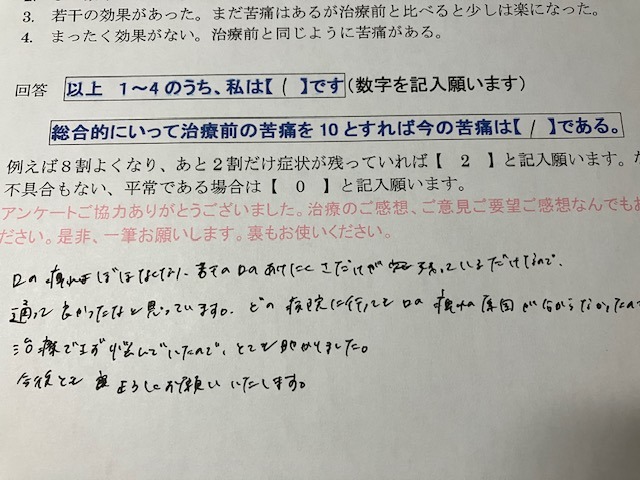 3. 若干の効果があった。まだ苦痛はあるが治療前と比べると少しは楽になった。
4. まったく効果がない。治療前と同じように苦痛がある。
回答 以上 1～4のうち、私は【 1 】です(数字を記入願います)
総合的にいって治療前の苦痛を10とすれば今の苦痛は【 1 】である。
例えば8割よくなり、あと2割だけ症状が残っていれば【 2 】と記入願います。
不具合もない、平常である場合は【 0 】と記入願います。
アンケートご協力ありがとうございました。治療のご感想、ご意見ご要望ご感想なんでもお
ださい。是非、一筆お願いします。裏もお使いください。
口の痛みはほぼなくなり、若干の口のあけにくさだけが残っているだけなので、
通って良かったなと思っています。どの病院に行っても口の痛みの原因が分からなかったので
治療できず悩んでいたので、とても助かりました。
今後ともよろしくお願いいたします。